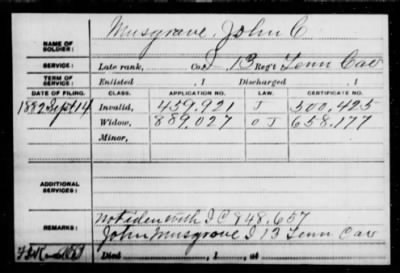 Musgrove, John C.
NAME OF SOLDIER:
SERVICE: Late rank, Co. I, 13 Reg't Tenn Cav
TERM OF SERVICE: Enlisted , 1 Discharged , 1
DATE OF FILING. CLASS. APPLICATION NO. LAW. CERTIFICATE NO.
1882 Sept 14 Invalid, 459.921 J 300.425
Widow, 889,027 O J 658.177
Minor,
ADDITIONAL SERVICES:
not iden with I C 848.657
REMARKS: John Musgrove I 13 Tenn Cav
Died , 1 , at